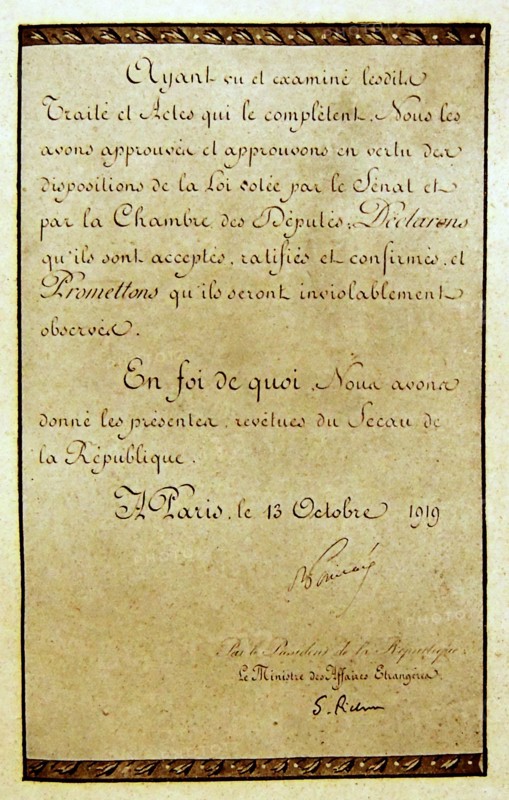 Ayant vu et examiné lesdits
Traité et Actes qui le complètent, Nous les
avons approuvés et approuvons en vertu des
dispositions de la Loi votée par le Sénat et
par la Chambre des Députés; Déclarons
qu'ils sont acceptés, ratifiés et confirmés, et
Promettons qu'ils seront inviolablement
observés.
En foi de quoi, Nous avons
donné les présentes, revêtues du Sceau de
la République.
A Paris, le 13 Octobre 1919
R Poincaré
Par le Président de la République:
Le Ministre des Affaires Etrangères.
S. Pichon